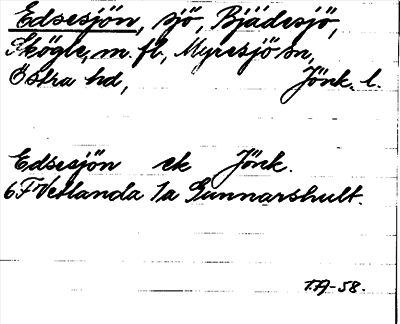 Edsesjön, sjö, Bjädesjö,
Skögle, m. fl., Myresjö sn,
Östra hd, Jönk. l.
Edsesjön ek Jönk.
6F Vetlanda 1a Gunnarshult.
T.A-58.